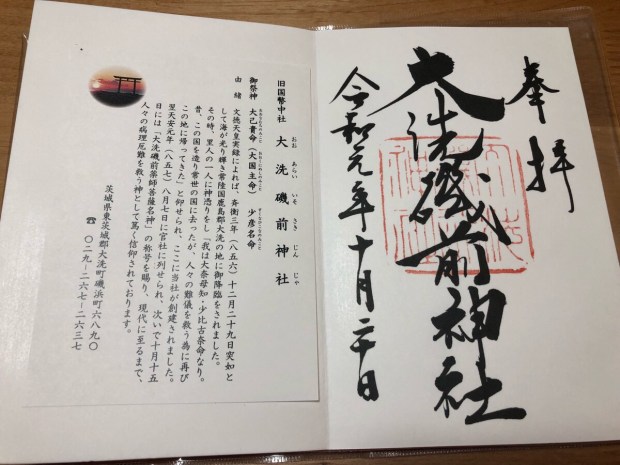 奉拝
大洗磯前神社
令和元年十月二十日
旧国幣中社 大洗磯前神社
おお あらい いそ さき じん じゃ
御祭神 大己貴命(大国主命) 少彦名命
由緒 文徳天皇実録によれば、斉衡三年(八五六)十二月二十九日突如と
して海が光り輝き常陸国鹿島郡大洗の地に御降臨をされました。
その時、里人の一人に神憑りをし「我は大奈母知・少比古奈命なり。
昔、この国を造り常世の国に去ったが、人々の難儀を救う為に再び
この地に帰ってきた」と仰せられ、ここに当社が創建されました。
翌天安元年(八五七)八月七日に官社に列せられ、次いで十月十五
日には「大洗磯前薬師菩薩名神」の称号を賜り、現代に至るまで、
人々の病理厄難を救う神として篤く信仰されております。
茨城県東茨城郡大洗町磯浜町六八九〇
☎ 〇二九-二六七-二六三七